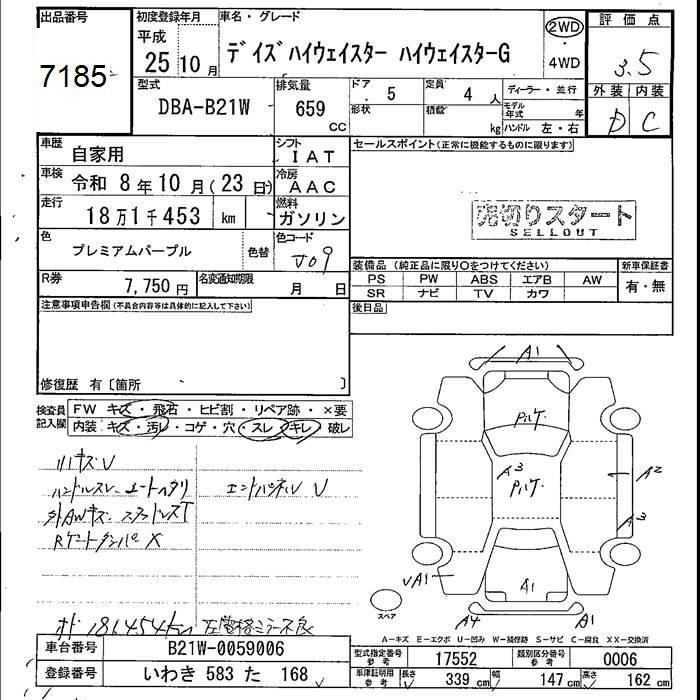 出品番号
7185
初度登録年月
平成
25 10 月
車名・グレード
デイズ ハイウェイスター ハイウェイスターG
2WD
・
4WD
評価点
3.5
外装 内装
D C
型式
DBA-B21W
排気量
659
CC
ドア
5
定員
4 人
形状
積載
kg
ディーラー・並行
モデル年式 年
ハンドル 左・右
車歴
自家用
シフト
IAT
車検
令和 8年10月(23日)
冷房
AAC
走行
18万1千453 km
燃料
ガソリン
色
プレミアムパープル
色替
色コード
J09
R券
7,750円
名変通知期限
月 日
セールスポイント(正常に機能するものに限ります)
売切りスタート
SELLOUT
装備品 (純正品に限り〇をつけてください)
PS PW ABS エアB AW
SR ナビ TV カワ
新車保証書
有・無
後日品
注意事項申告欄(不具合内容等は具体的に記入して下さい)
修復歴 有〔箇所 〕
検査員記入欄
FW キズ・飛石・ヒビ割・リペア跡・×要
内装 キズ・汚レ・コゲ・穴・スレ・キレ・破レ
リハキズU
ハンドルスレ シートヘタリ
エンドパネルU U
外AWキズ ステアトレスT
Rゲートダンパ X
メーター 181454km 左電格ミラー不良
A1
Pハゲ
A3
Pハゲ
A2
A3
UA1
A1
A4
A1
スペア
A-キズ E-エクボ U-凹み W-補修跡 S-サビ C-腐食 XX-交換済
車台番号
B21W-0059006
登録番号
いわき 583 た 168
型式指定番号
参考
17552
類別区分番号
参考
0006
車庫証明用
参考
長さ
339 cm
幅
147 cm
高さ
162 cm